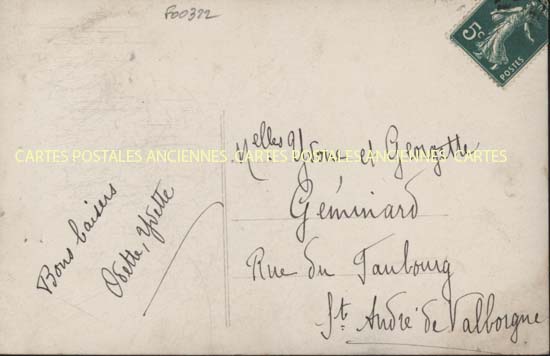 F00322
5c
POSTES
Bons baisers
Odette, Yvette
Melles Yvonne et Georgette
CARTES POSTALES ANCIENNES CARTES POSTALES ANCIENNES CARTES
Géminard
Rue du Faubourg
St. André de Valborgne